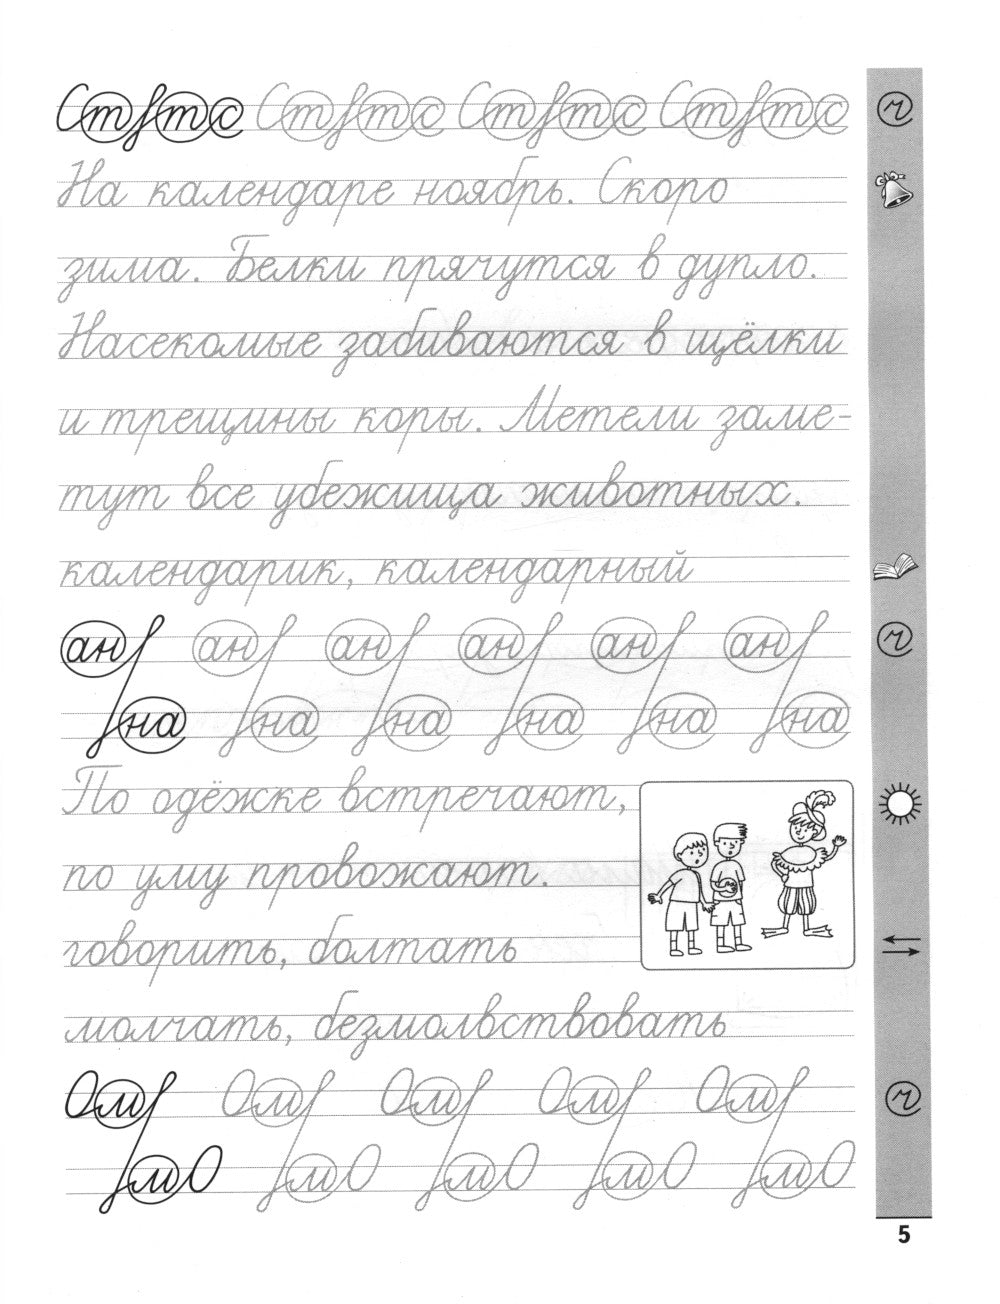 Стfтс Стfтс Стfтс Стfтс
На календаре ноябрь. Скоро
зима. Белки прячутся в дупло.
Насекомые забиваются в щёлки
и трещины коры. Метели заме-
тут все убежища животных.
календарик, календарный
ан ан ан ан ан ан
на на на на на на
По одёжке встречают,
по уму провожают.
говорить, болтать
молчать, безмолвствовать
Ом Ом Ом Ом Ом
мО мО мО мО мО
5